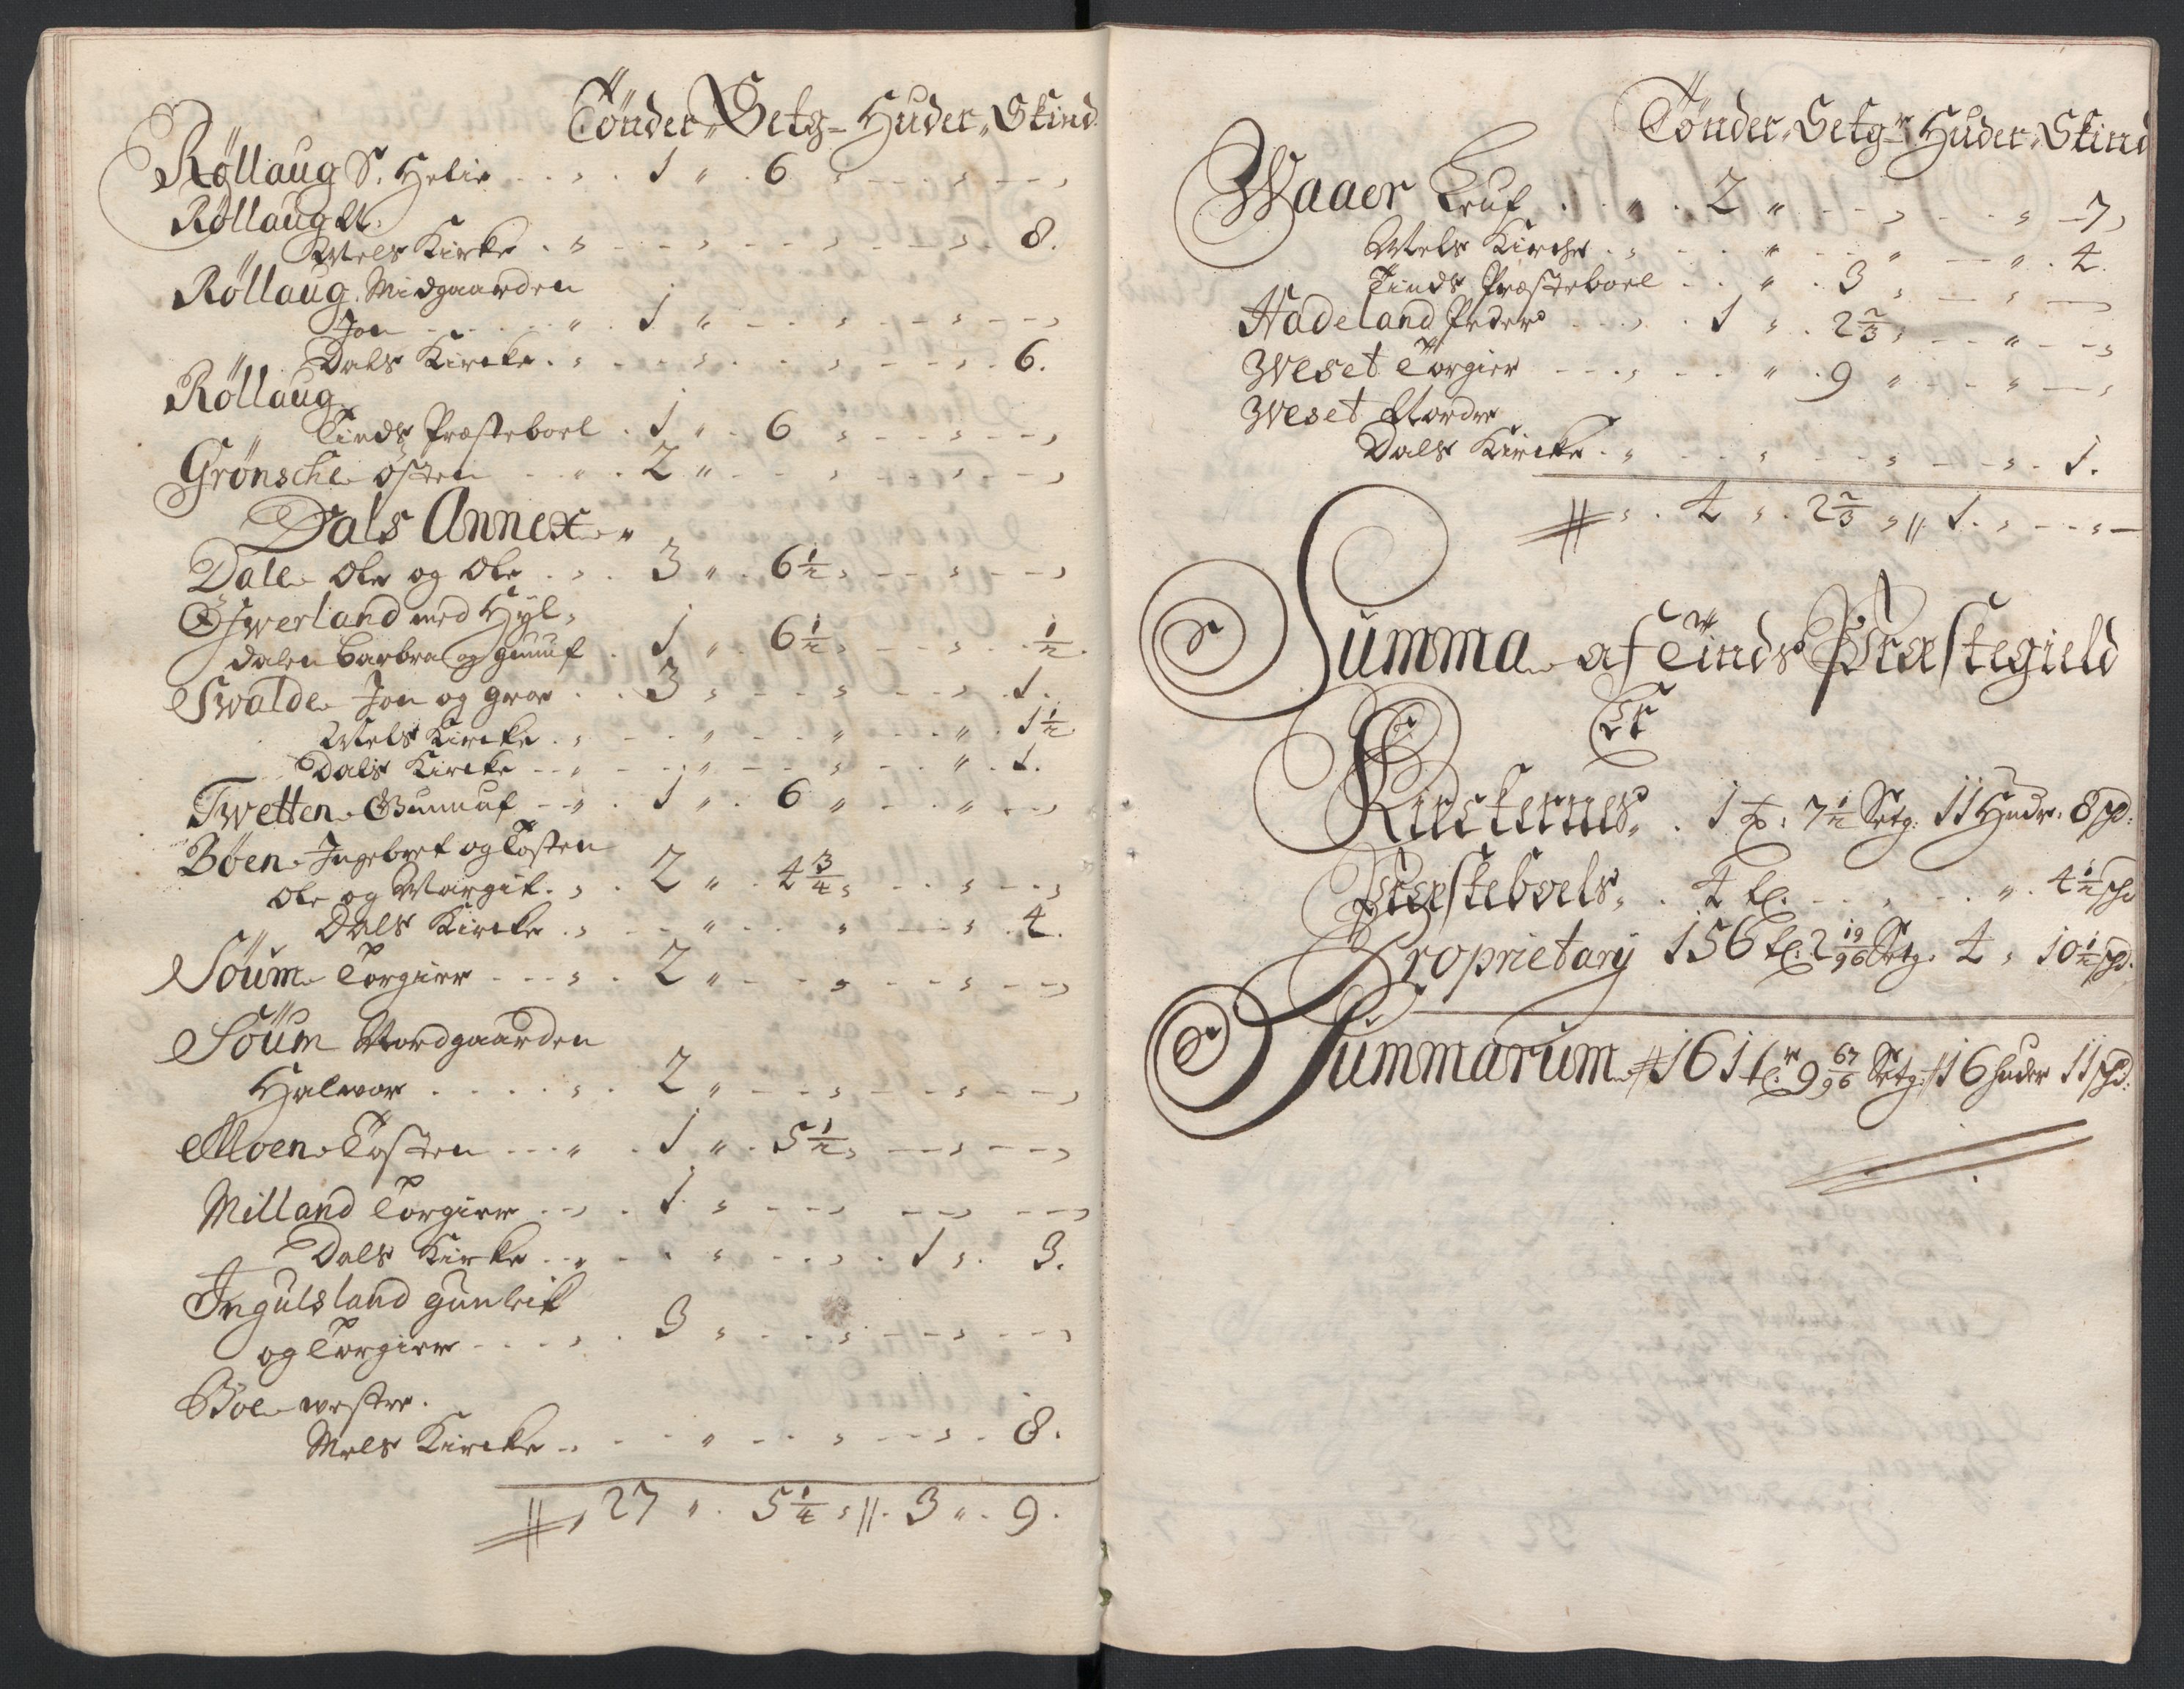 Tönder Setg- Huder Skind
Röllaug S. Helie 1 6
Röllaug N.
Mels Kirke 8.
Röllaug Midgaarden
Jon 1
Dals Kircke 6.
Röllaug
Tinds Præsteboel 1 6
Grönsche östen 2
Dals Annex
Dale Ole og Ole 3 6½
Ofwerland med Hyl-
dalen Barbra og Gunuf 1 6½ ½
Swalde Jon og Groe 3 1.
Mels Kircke 1½
Dals Kircke 1.
Twetten Gunnuf 1 6
Böen Ingebret og Tosten
Ole og Margit 2 4¾
Dals Kircke 4.
Söum Torgier 2
Söum Nordgaarden
Halvor 2
Moen Tosten 1 5½
Milland Torgier 1
Dals Kirke 1 3.
Ingulsland Gunleik
og Torgier 3
Böe westre.
Mels Kircke 8.
27 5¼ 3 9.
Tönder Setg Huder Skind
Waaer Leuf 2 7
Mels Kirche 4.
Tinds Præsteboel 3
Hadeland Peder 1 2⅔
Weset Torgier 9
Weset Nordre
Dals Kircke 1.
4 2⅔ 1
Summa af Tinds Præstegield
Er
Kirckernes 1 T. 7½ Setg. 11 Huder. 8 sk:
Præsteboels 4 T. 4½ sk
Proprietary 156 T. 2 19/96 Setg. 4 10½ sk.
Summarum 161 T. 9 67/96 Setg. 16 huder 11 sk: